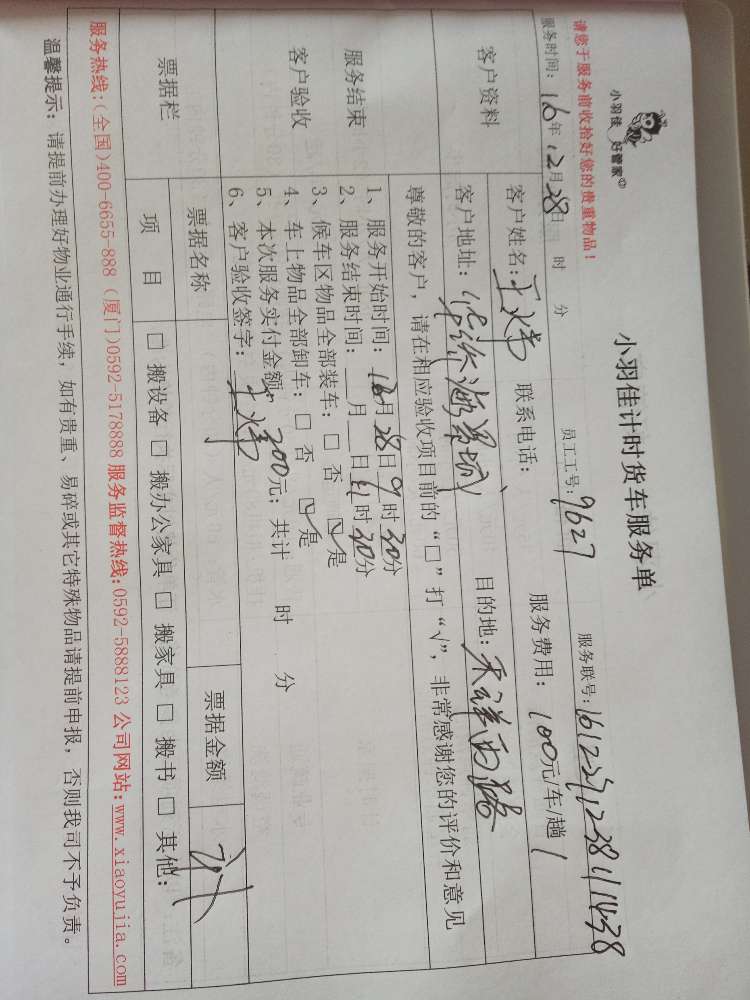 小羽佳 好管家
小羽佳计时货车服务单
请您于服务前收拾好您的贵重物品！
员工工号：9627
服务时间：16年12月28日 时 分
客户资料
客户姓名：王
联系电话：
服务费用：100元/车/趟
客户地址：
目的地：禾祥西路
尊敬的客户，请在相应验收项目前的“□”打“√”，非常感谢您的评价和意见
服务结束
客户验收
1、服务开始时间：12月28日9时30分
2、服务结束时间：__月__日11时30分
3、候车区物品全部装车：□ 否 ☑ 是
4、车上物品全部卸车：□ 否 ☑ 是
5、本次服务实付金额：200元；共计 时 分
6、客户验收签字：王
票据栏
票据名称
票据金额
项 目
□ 搬设备 □ 搬办公家具 □ 搬家具 □ 搬书 □ 其他：
服务热线：(全国)400-6655-888 (厦门)0592-5178888 服务监督热线：0592-5888123 公司网站：www.xiaoyujia.com
温馨提示：请提前办理好物业通行手续，如有贵重、易碎或其它特殊物品请提前申报，否则我司不予负责。